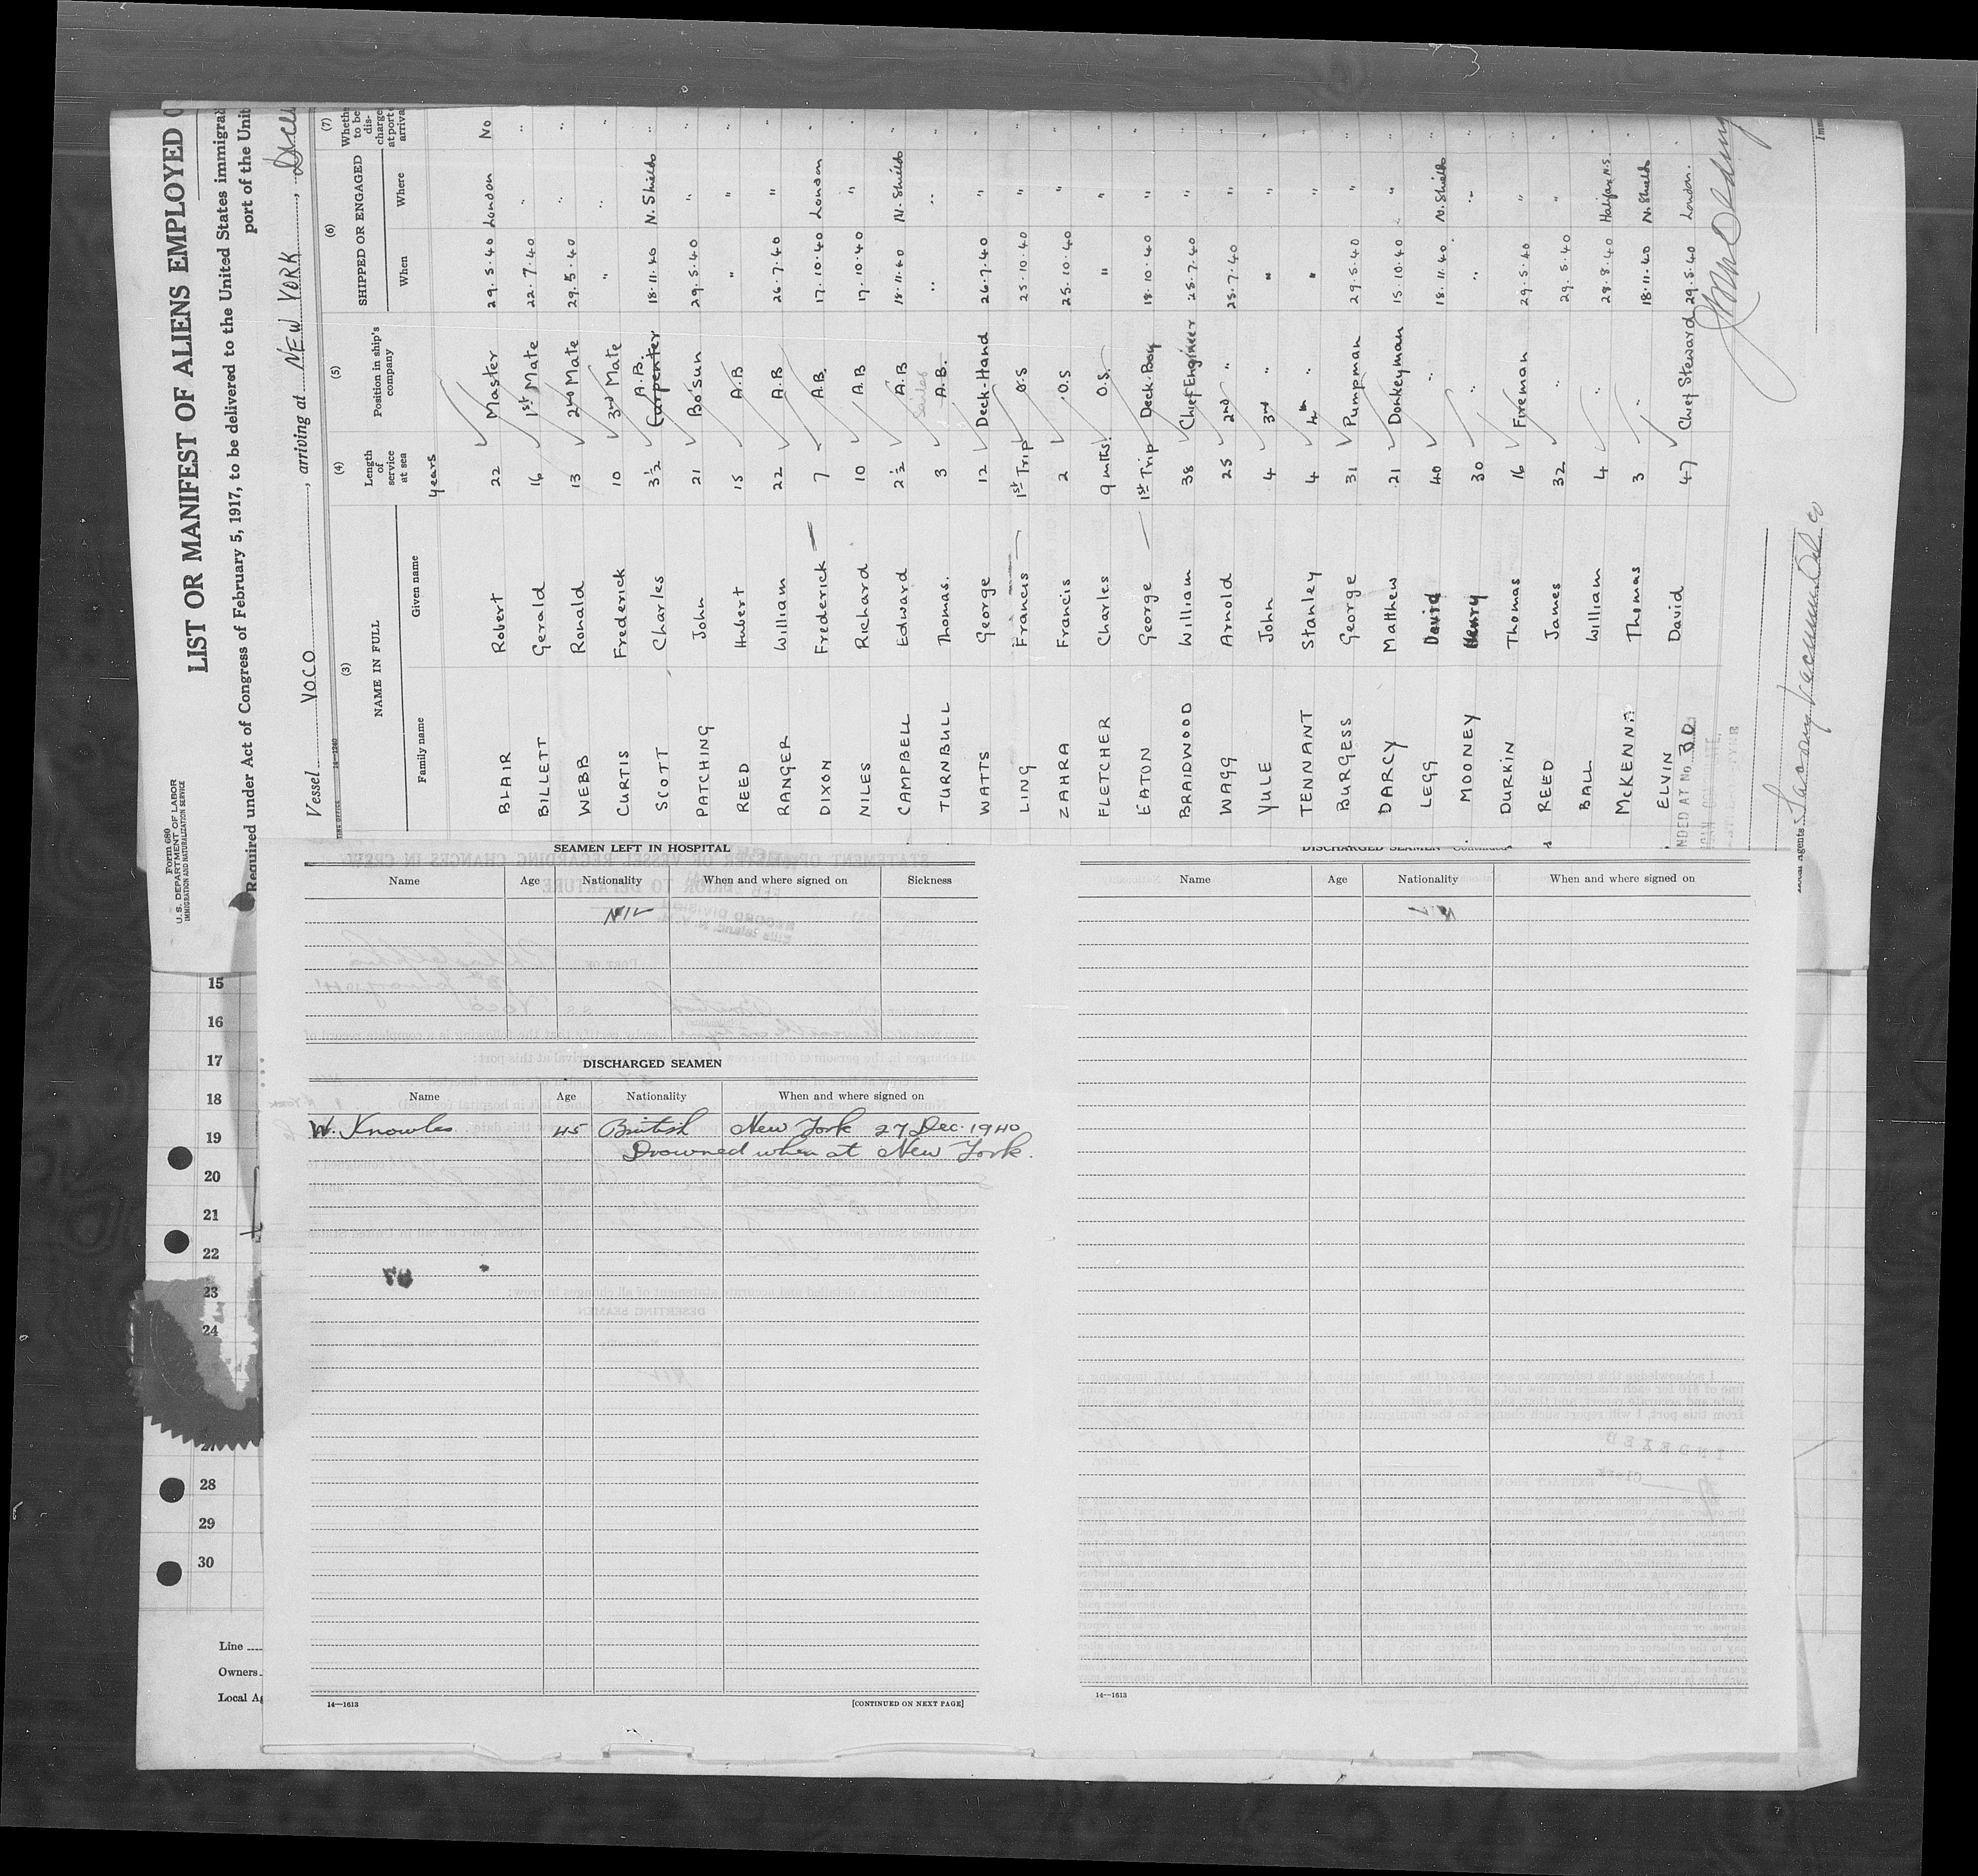 Form 680
U. S. DEPARTMENT OF LABOR
IMMIGRATION AND NATURALIZATION SERVICE
LIST OR MANIFEST OF ALIENS EMPLOYED O
Required under Act of Congress of February 5, 1917, to be delivered to the United States immigrat
port of the Unit
Vessel VOCO, arriving at NEW YORK,
14—1240
(3) (4) (5) (6) (7)
NAME IN FULL Length of service at sea Position in ship's company SHIPPED OR ENGAGED Whethe to be dis- charge at port o arriva
Family name Given name When Where
Years
BLAIR Robert 22 Master 29.5.40 London No
BILLETT Gerald 16 1st Mate 22.7.40 " "
WEBB Ronald 13 2nd Mate 29.5.40 " "
CURTIS Frederick 10 3rd Mate " " "
SCOTT Charles 3½ A.B. Carpenter 18.11.40 N. Shields "
PATCHING John 21 Bo'sun 29.5.40 " "
REED Hubert 15 A.B " " "
RANGER William 22 A.B 26.7.40 " "
DIXON Frederick 7 A.B. 17.10.40 London "
NILES Richard 10 A.B 17.10.40 " "
CAMPBELL Edward 2½ A.B 18.11.40 N. Shields "
TURNBULL Thomas. 3 Sailor A.B. " " "
WATTS George 12 Deck-Hand 26.7.40 " "
LING Francus 1st Trip O.S 25.10.40 " "
ZAHRA Francis 2 O.S 25.10.40 " "
FLETCHER Charles 9 mths. O.S. " " "
EATON George 1st Trip Deck-Boy 18.10.40 " "
BRAIDWOOD William 38 Chief Engineer 25.7.40 " "
WAGG Arnold 25 2nd " 25.7.40 " "
YULE John 4 3rd " " " "
TENNANT Stanley 4 4th " " " "
BURGESS George 31 Pumpman 29.5.40 " "
DARCY Matthew 21 Donkeyman 15.10.40 " "
LEGG David 40 " 18.11.40 N. Shields "
MOONEY Henry 30 " " " "
DURKIN Thomas 16 Fireman 29.5.40 " "
REED James 32 " 29.5.40 " "
BALL William 4 " 28.8.40 Halifax N.S. "
McKENNA Thomas 3 " 18.11.40 N. Shields "
ELVIN David 47 Chief Steward 29.5.40 London.
NDED AT No. 30
SEAMEN LEFT IN HOSPITAL
Name Age Nationality When and where signed on Sickness
NIL
DISCHARGED SEAMEN
Name Age Nationality When and where signed on
W. Knowles 45 British New York 27 Dec. 1940
Drowned when at New York.
14—1613 [CONTINUED ON NEXT PAGE]
DISCHARGED SEAMEN—Continued
Name Age Nationality When and where signed on
14—1613
15
16
17
18
19
20
21
22
23
24
27
28
29
30
Line
Owners
Local Ag